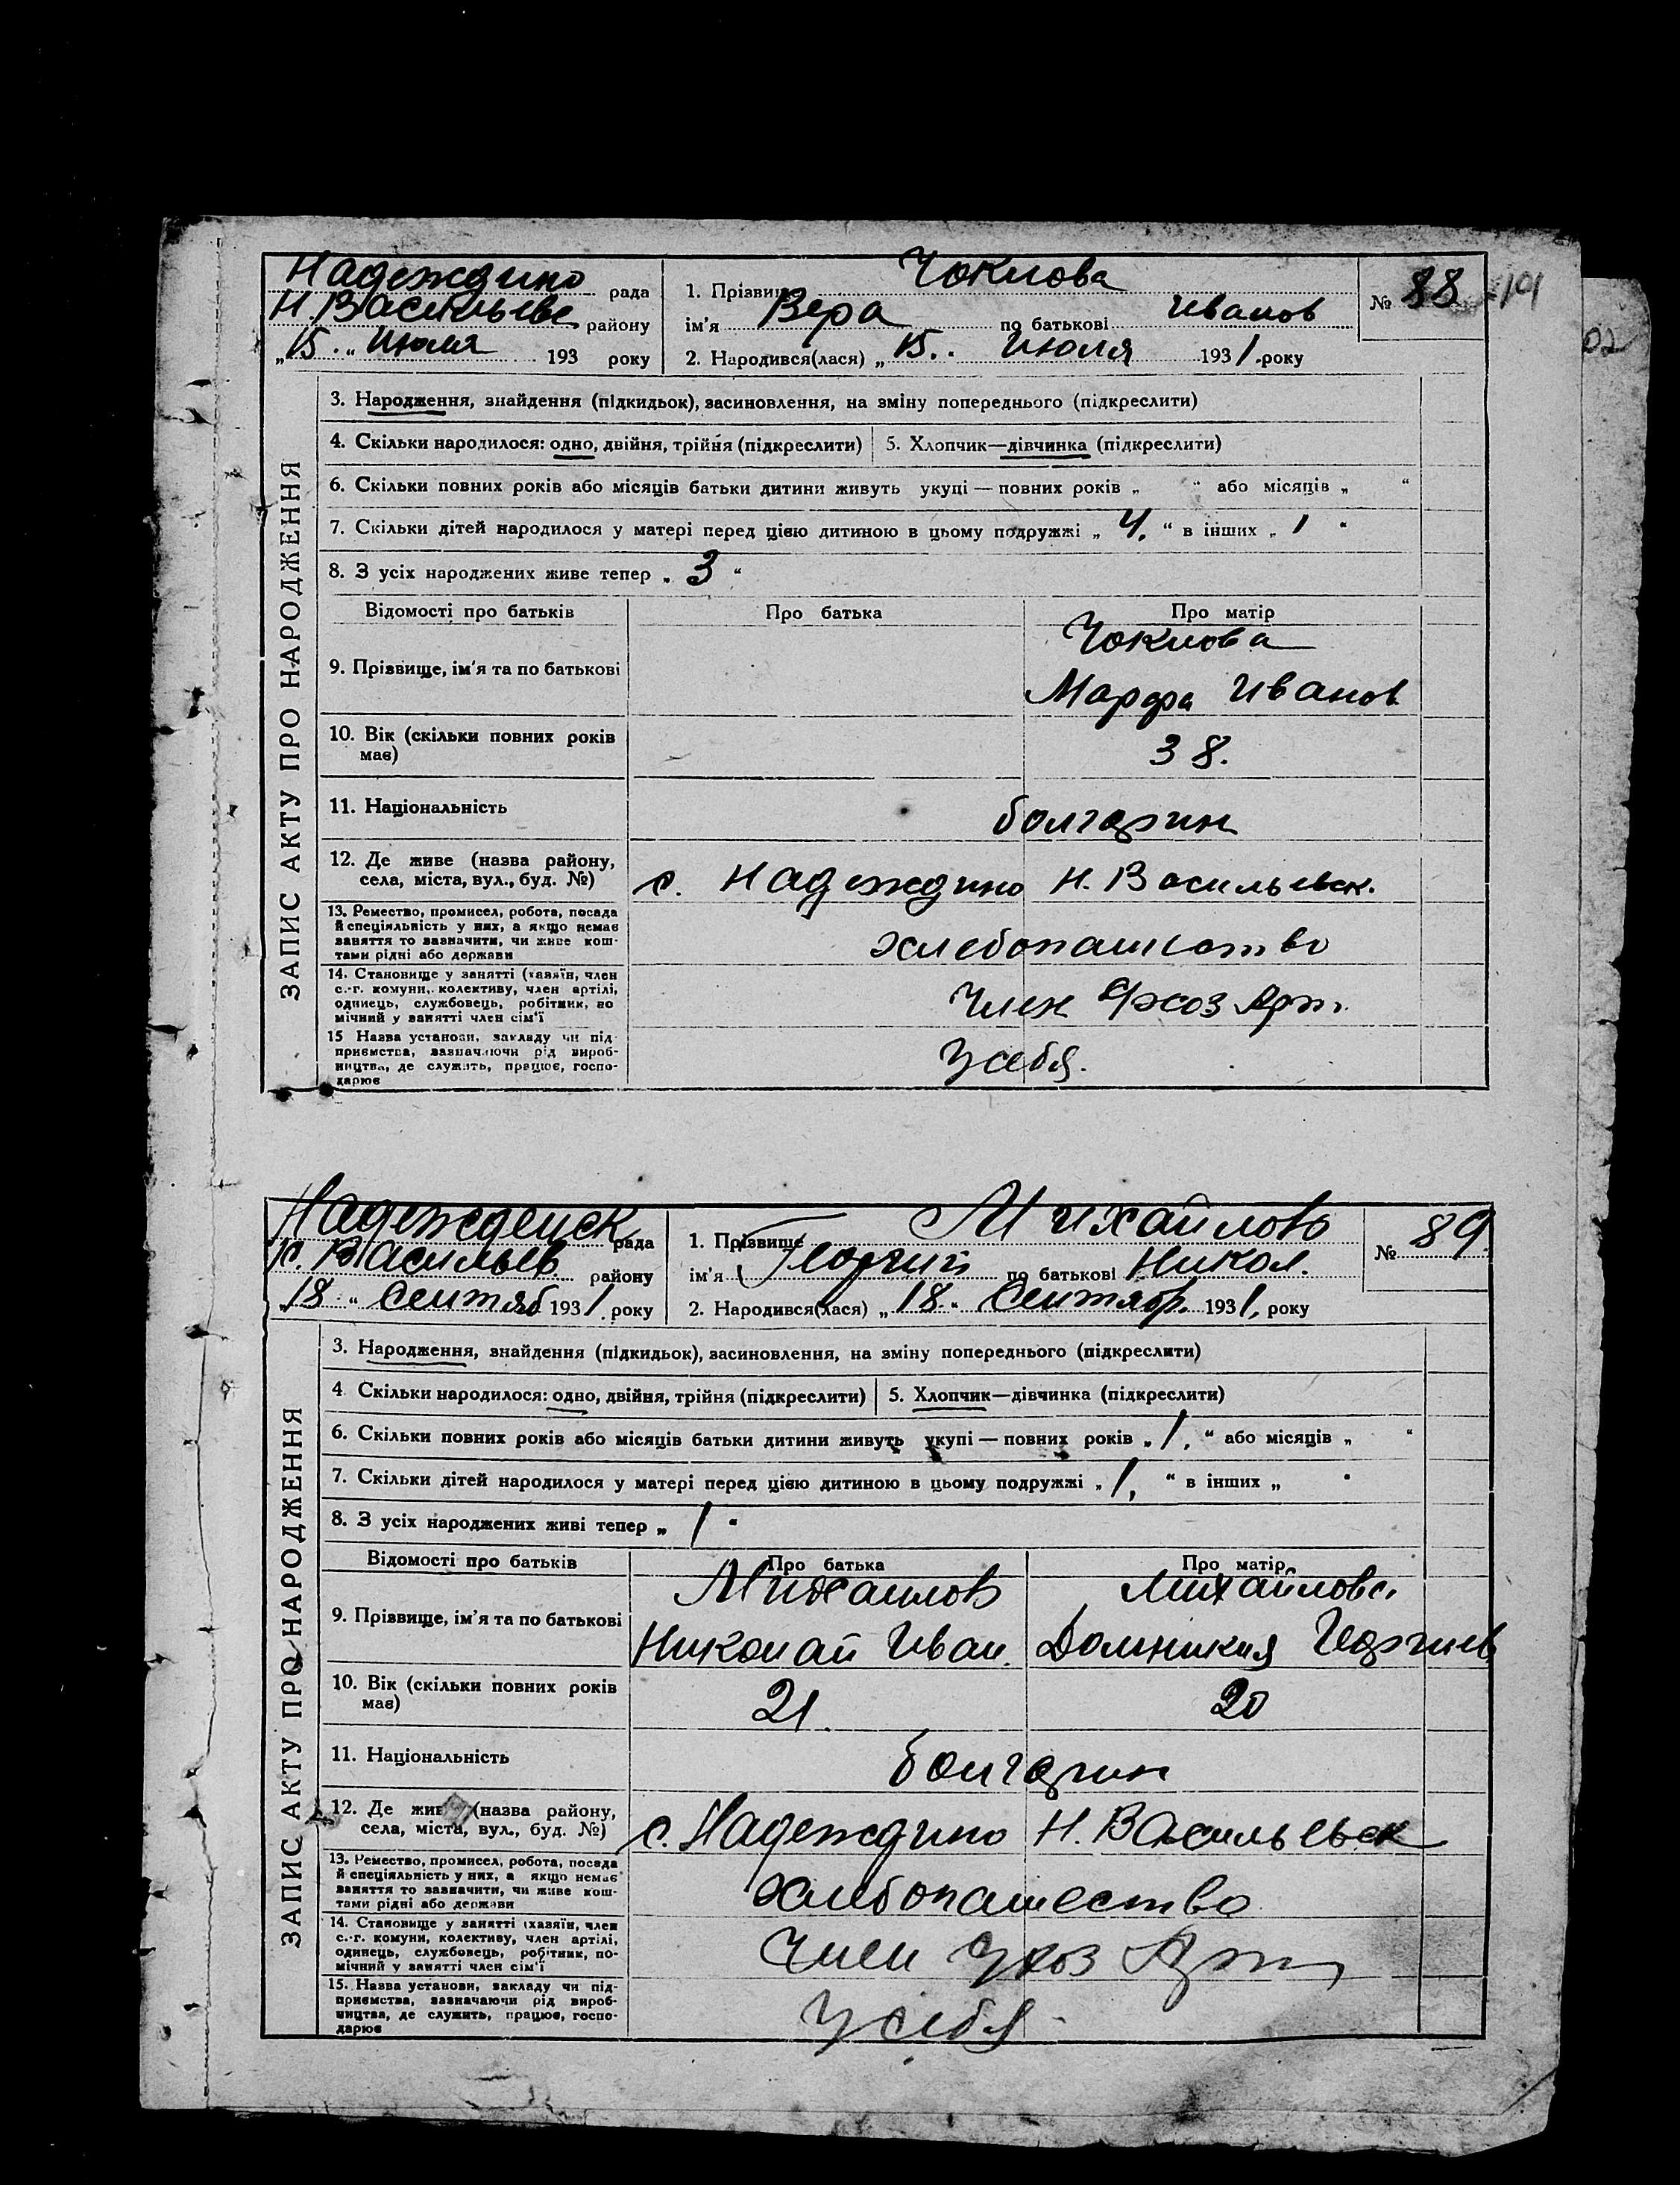 Надеждино рада
Н. Васильевс району
„15.“ Июля 193 року
1. Прізвище Чокиова
ім'я Вера по батькові Иванов
2. Народився(лася) „15.. Июля 1931. року
№ 88
191
02
ЗАПИС АКТУ ПРО НАРОДЖЕННЯ
3. Народження, знайдення (підкидьок), засиновлення, на зміну попереднього (підкреслити)
4. Скільки народилося: одно, двійня, трійня (підкреслити) 5. Хлопчик—дівчинка (підкреслити)
6. Скільки повних років або місяців батьки дитини живуть укупі — повних років „ “ або місяців „ “
7. Скільки дітей народилося у матері перед цією дитиною в цьому подружжі „ 4. “ в інших „ 1 “
8. З усіх народжених живе тепер „ 3 “
Відомості про батьків Про батька Про матір
9. Прізвище, ім'я та по батькові Чокиова
Марфа Иванов
10. Вік (скільки повних років має) 38.
11. Національність болгарин
12. Де живе (назва району, села, міста, вул., буд. №) с. Надеждино Н. Васильевск.
13. Ремество, промисел, робота, посада
й спеціяльність у них, а якщо немає
заняття то зазначити, чи живе кош-
тами рідні або держави
хлебопашество
14. Становище у занятті (хазяїн, член
с.-г. комуни, колективу, член артілі,
одинець, службовець, робітник, по
мічний у занятті член сім'ї
Член Арт.
15 Назва установи, закладу чи під-
приємства, зазначаючи рід вироб-
ництва, де служить, працює, госпо-
дарює
У себя.
Надежденск рада
Н. Васильев району
„18“ Сентяб 1931. року
1. Прізвище Михайлов
ім'я Георгий по батькові Никол.
2. Народився(лася) „18.“ Сентябр. 1931, року
№ 89.
ЗАПИС АКТУ ПРО НАРОДЖЕННЯ
3. Народження, знайдення (підкидьок), засиновлення, на зміну попереднього (підкреслити)
4 Скільки народилося: одно, двійня, трійня (підкреслити) 5. Хлопчик—дівчинка (підкреслити)
6. Скільки повних років або місяців батьки дитини живуть укупі — повних років „ 1, “ або місяців „ “
7. Скільки дітей народилося у матері перед цією дитиною в цьому подружжі „ 1, “ в інших „ “
8. З усіх народжених живі тепер „ 1 “
Відомості про батьків Про батька Про матір
9. Прізвище, ім'я та по батькові Михаилов Михайлова
Николай Иван. Домникия Георгиев
10. Вік (скільки повних років має) 21. 20
11. Національність болгарин
12. Де живе (назва району, села, міста, вул., буд. №) с. Надеждино Н. Васильевск
13. Ремество, промисел, робота, посада
й спеціяльність у них, а якщо немає
заняття то зазначити, чи живе кош-
тами рідні або держави
хлебопашество
14. Становище у занятті (хазяїн, член
с.-г. комуни, колективу, член артілі,
одинець, службовець, робітник, по-
мічний у занятті член сім'ї
Член Арт.
15. Назва установи, закладу чи під-
приємства, зазначаючи рід вироб-
ництва, де служить, працює, госпо-
дарює
У себя